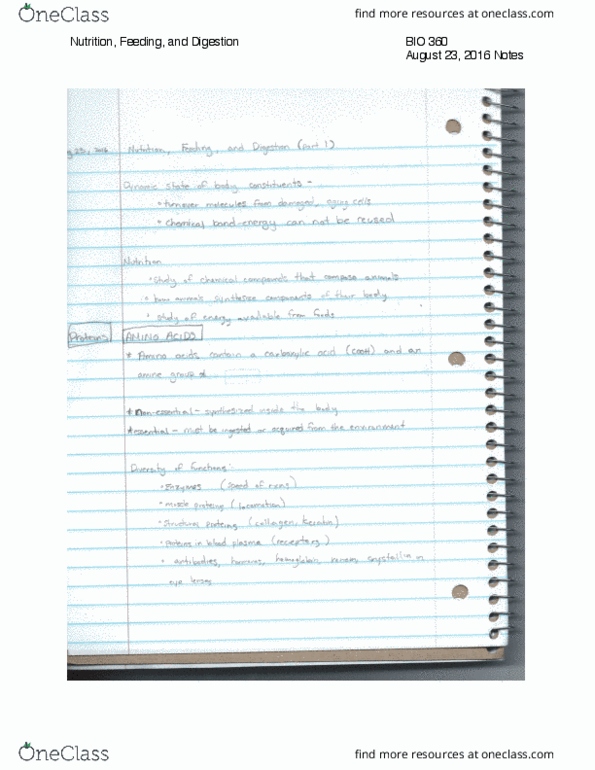 OneClass
find more resources at oneclass.com
Nutrition, Feeding, and Digestion
BIO 360
August 23, 2016 Notes
23, 2016
Nutrition, Feeding, and Digestion (part 1)
Dynamic state of body constituents -
• turnover molecules from damaged, aging cells
• chemical bond energy can not be reused
Nutrition
• Study of chemical compounds that compose animals
• how animals synthesize components of their body
• study of energy available from foods
Proteins
AMINO ACIDS
* Amino acids contain a carboxylic acid (COOH) and an
amine group
* Non-essential - synthesized inside the body
* essential - must be ingested or acquired from the environment
Diversity of functions:
• Enzymes (speed of rxns)
• muscle proteins (locomotion)
• Structural proteins (collagen, keratin)
• Proteins in blood plasma (receptors)
• antibodies, hormones, hemoglobin, venom, crystallin in
eye lenses
OneClass
find more resources at oneclass.com